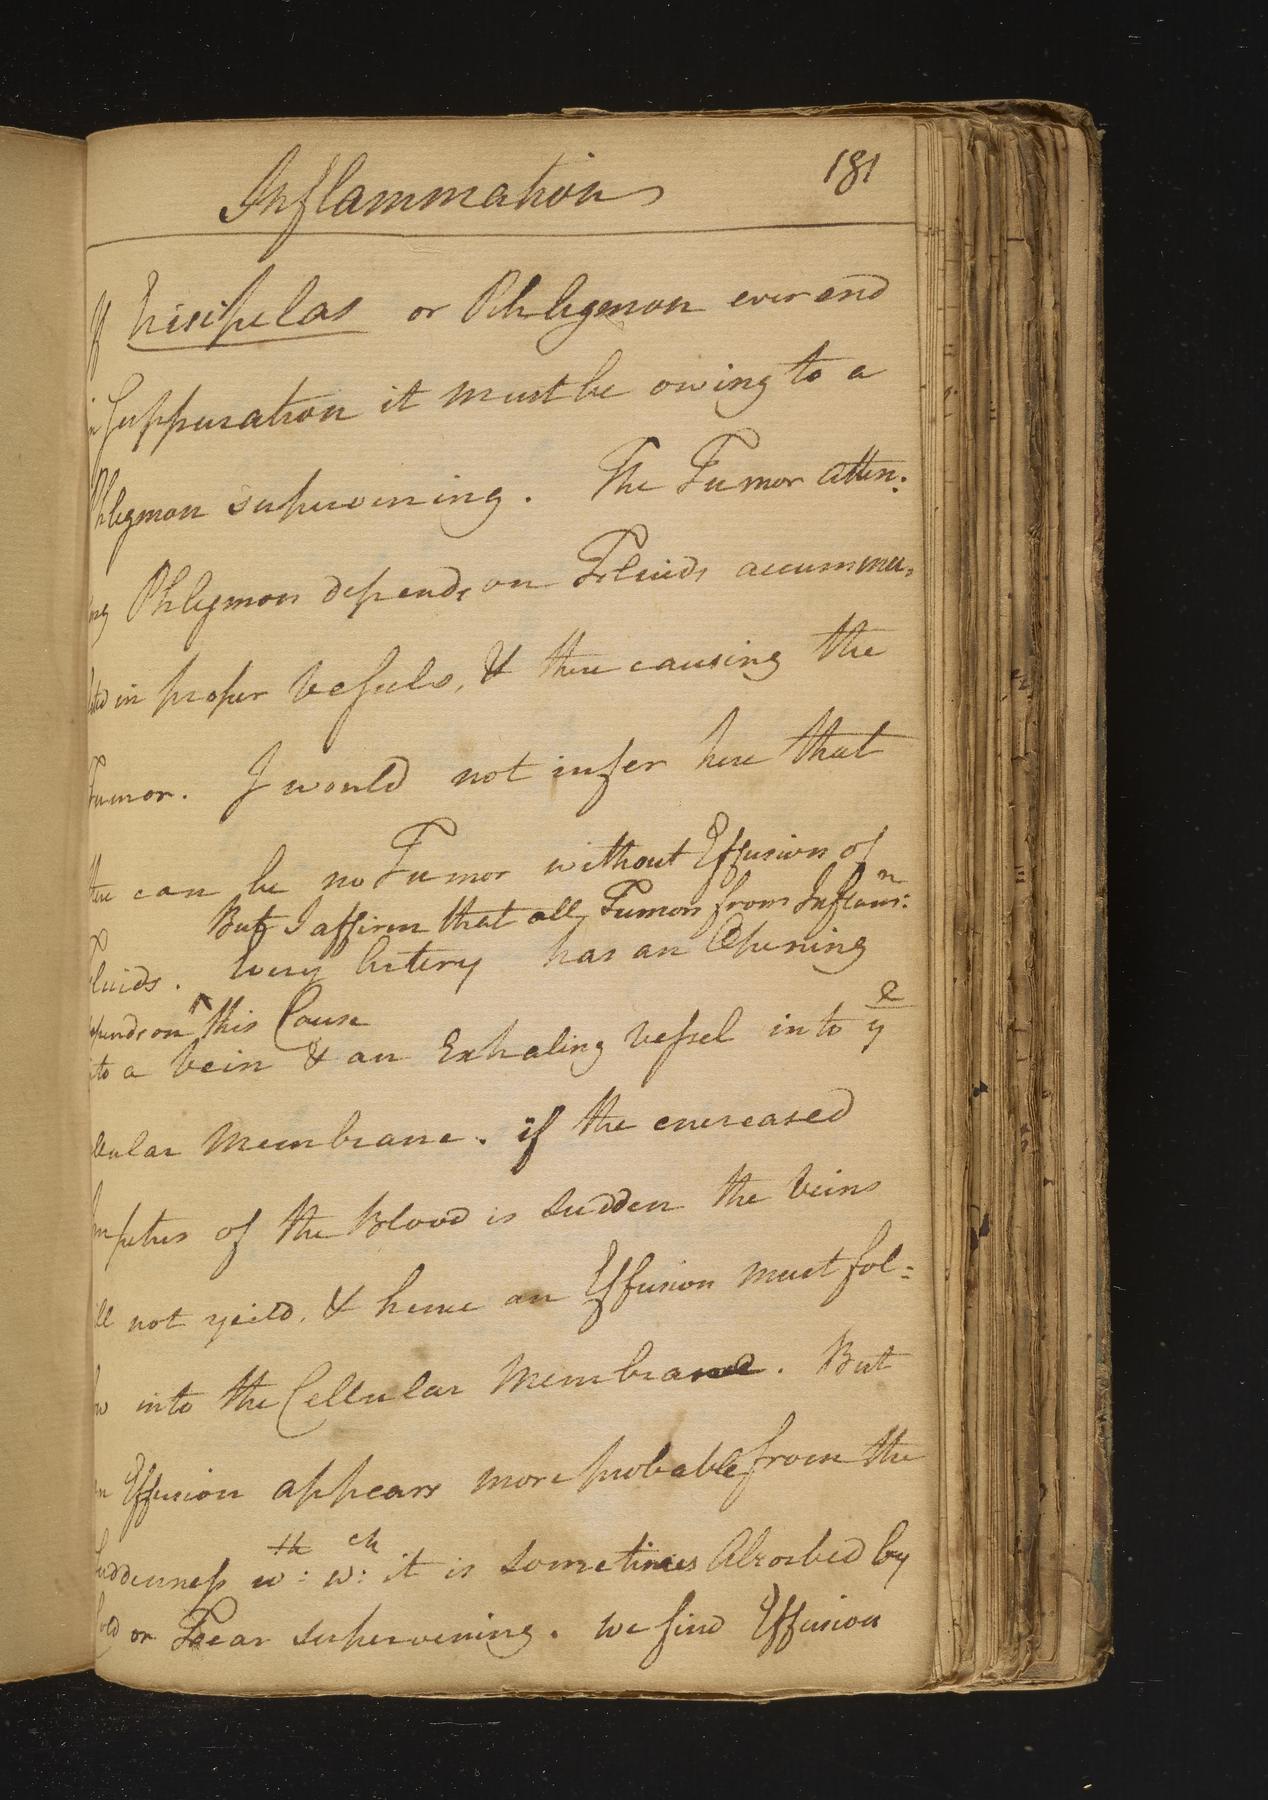 Inflammation 181
If Erisipelas or Phlegmon ever end
in Suppuration it must be owing to a
Phlegmon supervening. The Tumor atten:
ing Phlegmon depends on Fluids accummu=
lated in proper Vessels, & there causing the
Tumor. I would not infer here that
there can be no Tumor without Effusion of
But I affirm that all Tumors from Inflam:n
Fluids. Every Artery has an Opening
depends on ^ this Cause
into a Vein & an Exhaling Vessel into ye
llular Membrane. if the encreased
Impetus of the Blood is sudden the Veins
will not yeild, & hence an Effusion must fol=
low into the Cellular Membrane. But
an Effusion appears more probable from the
Suddenness wth: wch: it is sometimes Absorbed by
Cold or Fear supervening. We find Effusion